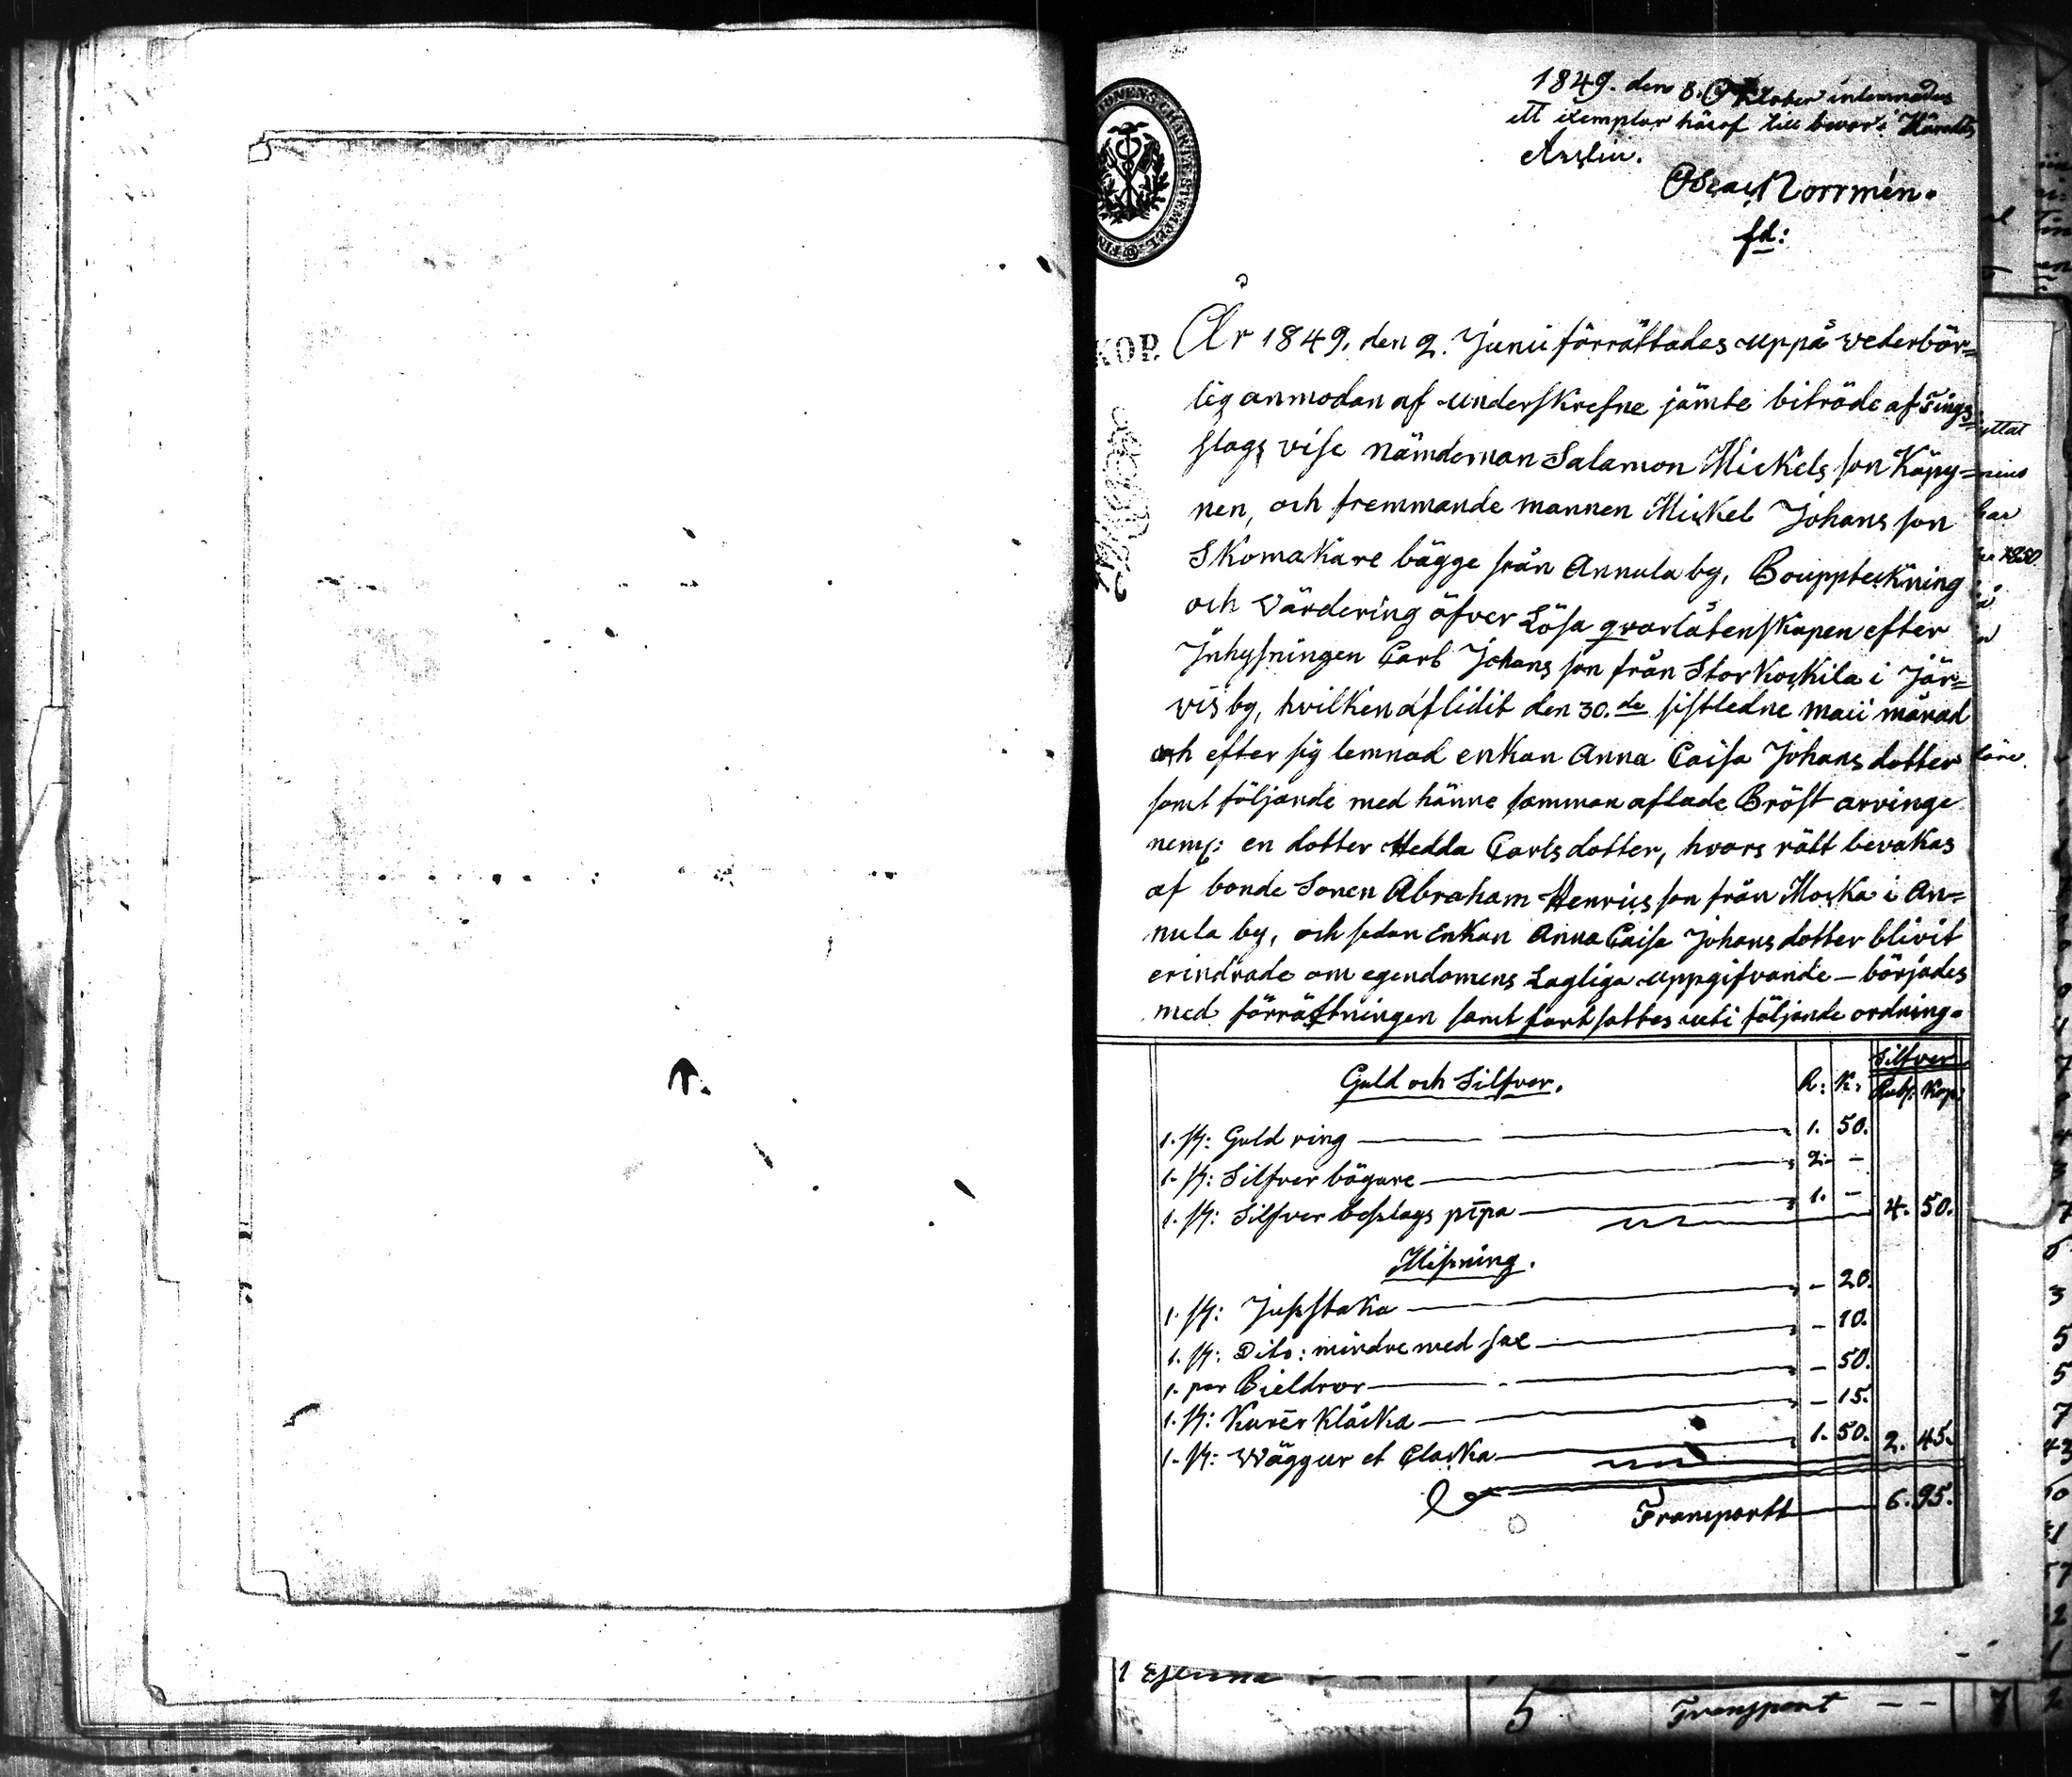 1849. den 8. October inlemnades
ett exemplar häraf till bevar: Härads
Arqliu.
Oscar Norrmén.
fd:
KOP.
År 1849, den 2. Junii förrättades uppå vederbör=
lig anmodan af underskrefne jämte biträde af Tings=
slags vise nämdeman Salamon Mickels son Käpy=
nen, och fremmande mannen Mickel Johans son
Skomakare bägge från Annula by, Bouppteckning
och Värdering öfver Lösa qvarlåtenskapen efter
Inhysningen Carl Johans son från Storkockila i Jär=
vis by, hvilken aflidit den 30.de sistledne maii månad
och efter sig lemnad enkan Anna Caisa Johans dotter
samt följande med hänne samman aflade Bröst arvinge
neml: en dotter Hedda Carls dotter, hvars rätt bevakas
af bonde Sonen Abraham Henrics son från Mocka i An=
nula by, och sedan Enkan Anna Caisa Johans dotter blivit
erindrade om egendomens Lagliga uppgifvande – börjades
med förrättningen samt fortsattes uti följande ordning.
Guld och Silfver. R: K: Silfver Rub: Kop:
1. st: Guld ring 1. 50.
1. st: Silfver bägare 2. –
1. st: Silfver beslags pipa 1. – 4. 50.
Missning.
1. st: Jusstaka – 20.
1. st: Dito: mindre med sax – 10.
1. par Bieldror – 50.
1. st: Kurer Klåcka – 15.
1. st: Väggur et Clacka 1. 50. 2. 45.
Transportt 6. 95.
5 Transport – – 7